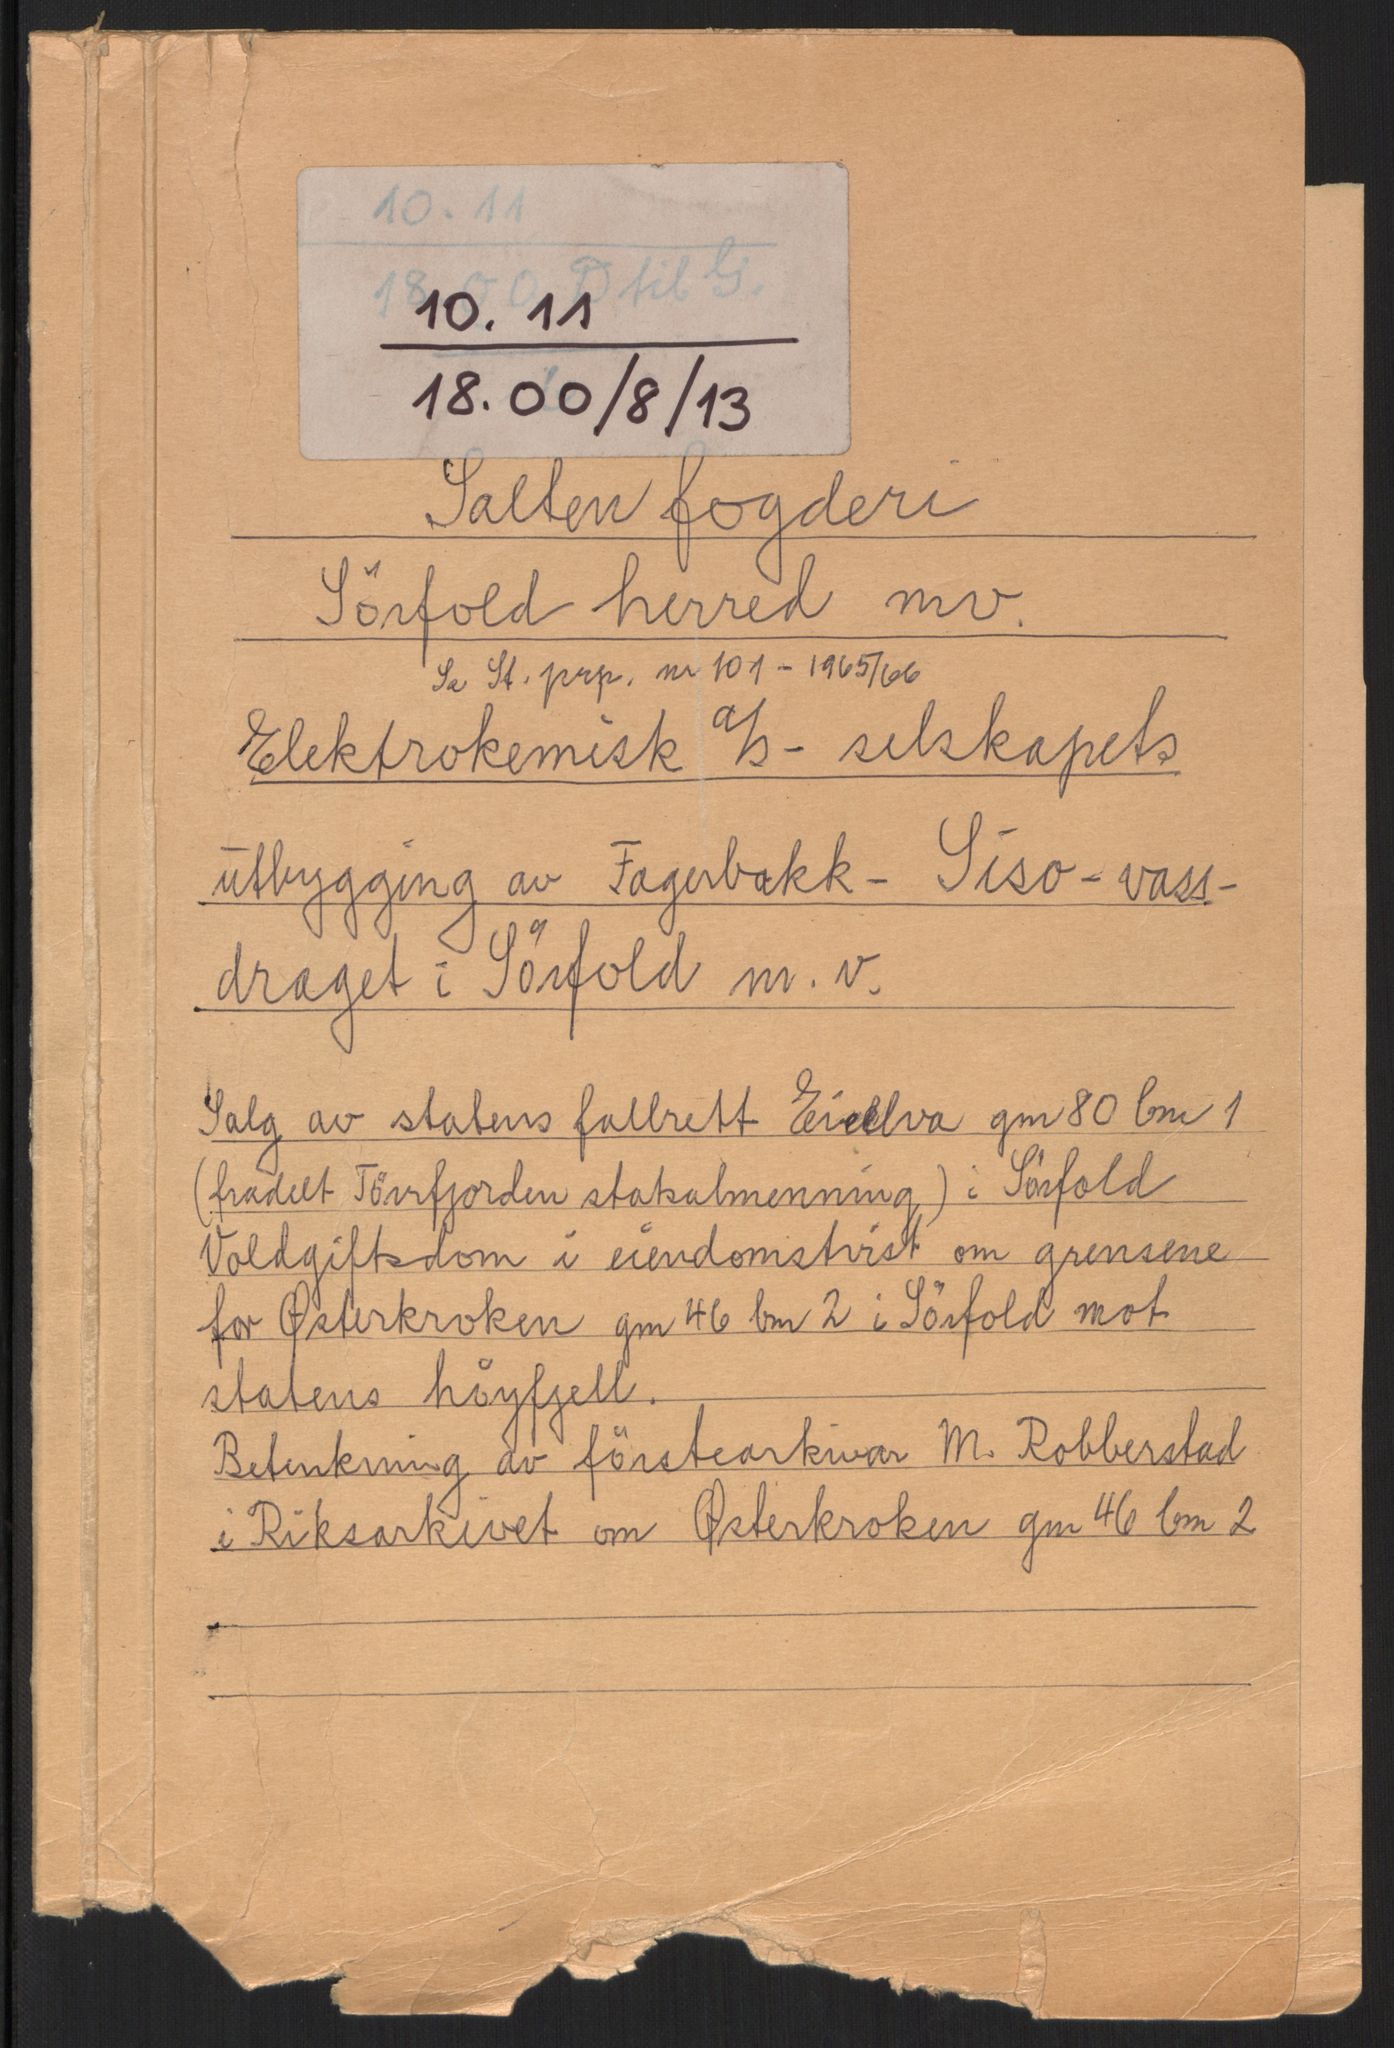 10. 11
18.00 D til G.
10. 11
18.00/8/13
Salten fogderi
Sörfold herred mv.
Se St. prp. nr 101 - 1965/66
Elektrokemisk a/s - selskapets
utbygging av Fagerbakk - Siso - vass-
draget i Sörfold m.v.
Salg av statens fallrett Eielva gnr 80 bnr 1
(fradelt Törrfjorden statsalmenning) i Sörfold
Voldgiftsdom i eiendomstvist om grensene
for Østerkroken gnr 46 bnr 2 i Sörfold mot
statens höyfjell.
Betenkning av förstearkivar M. Robberstad
i Riksarkivet om Østerkroken gnr 46 bnr 2